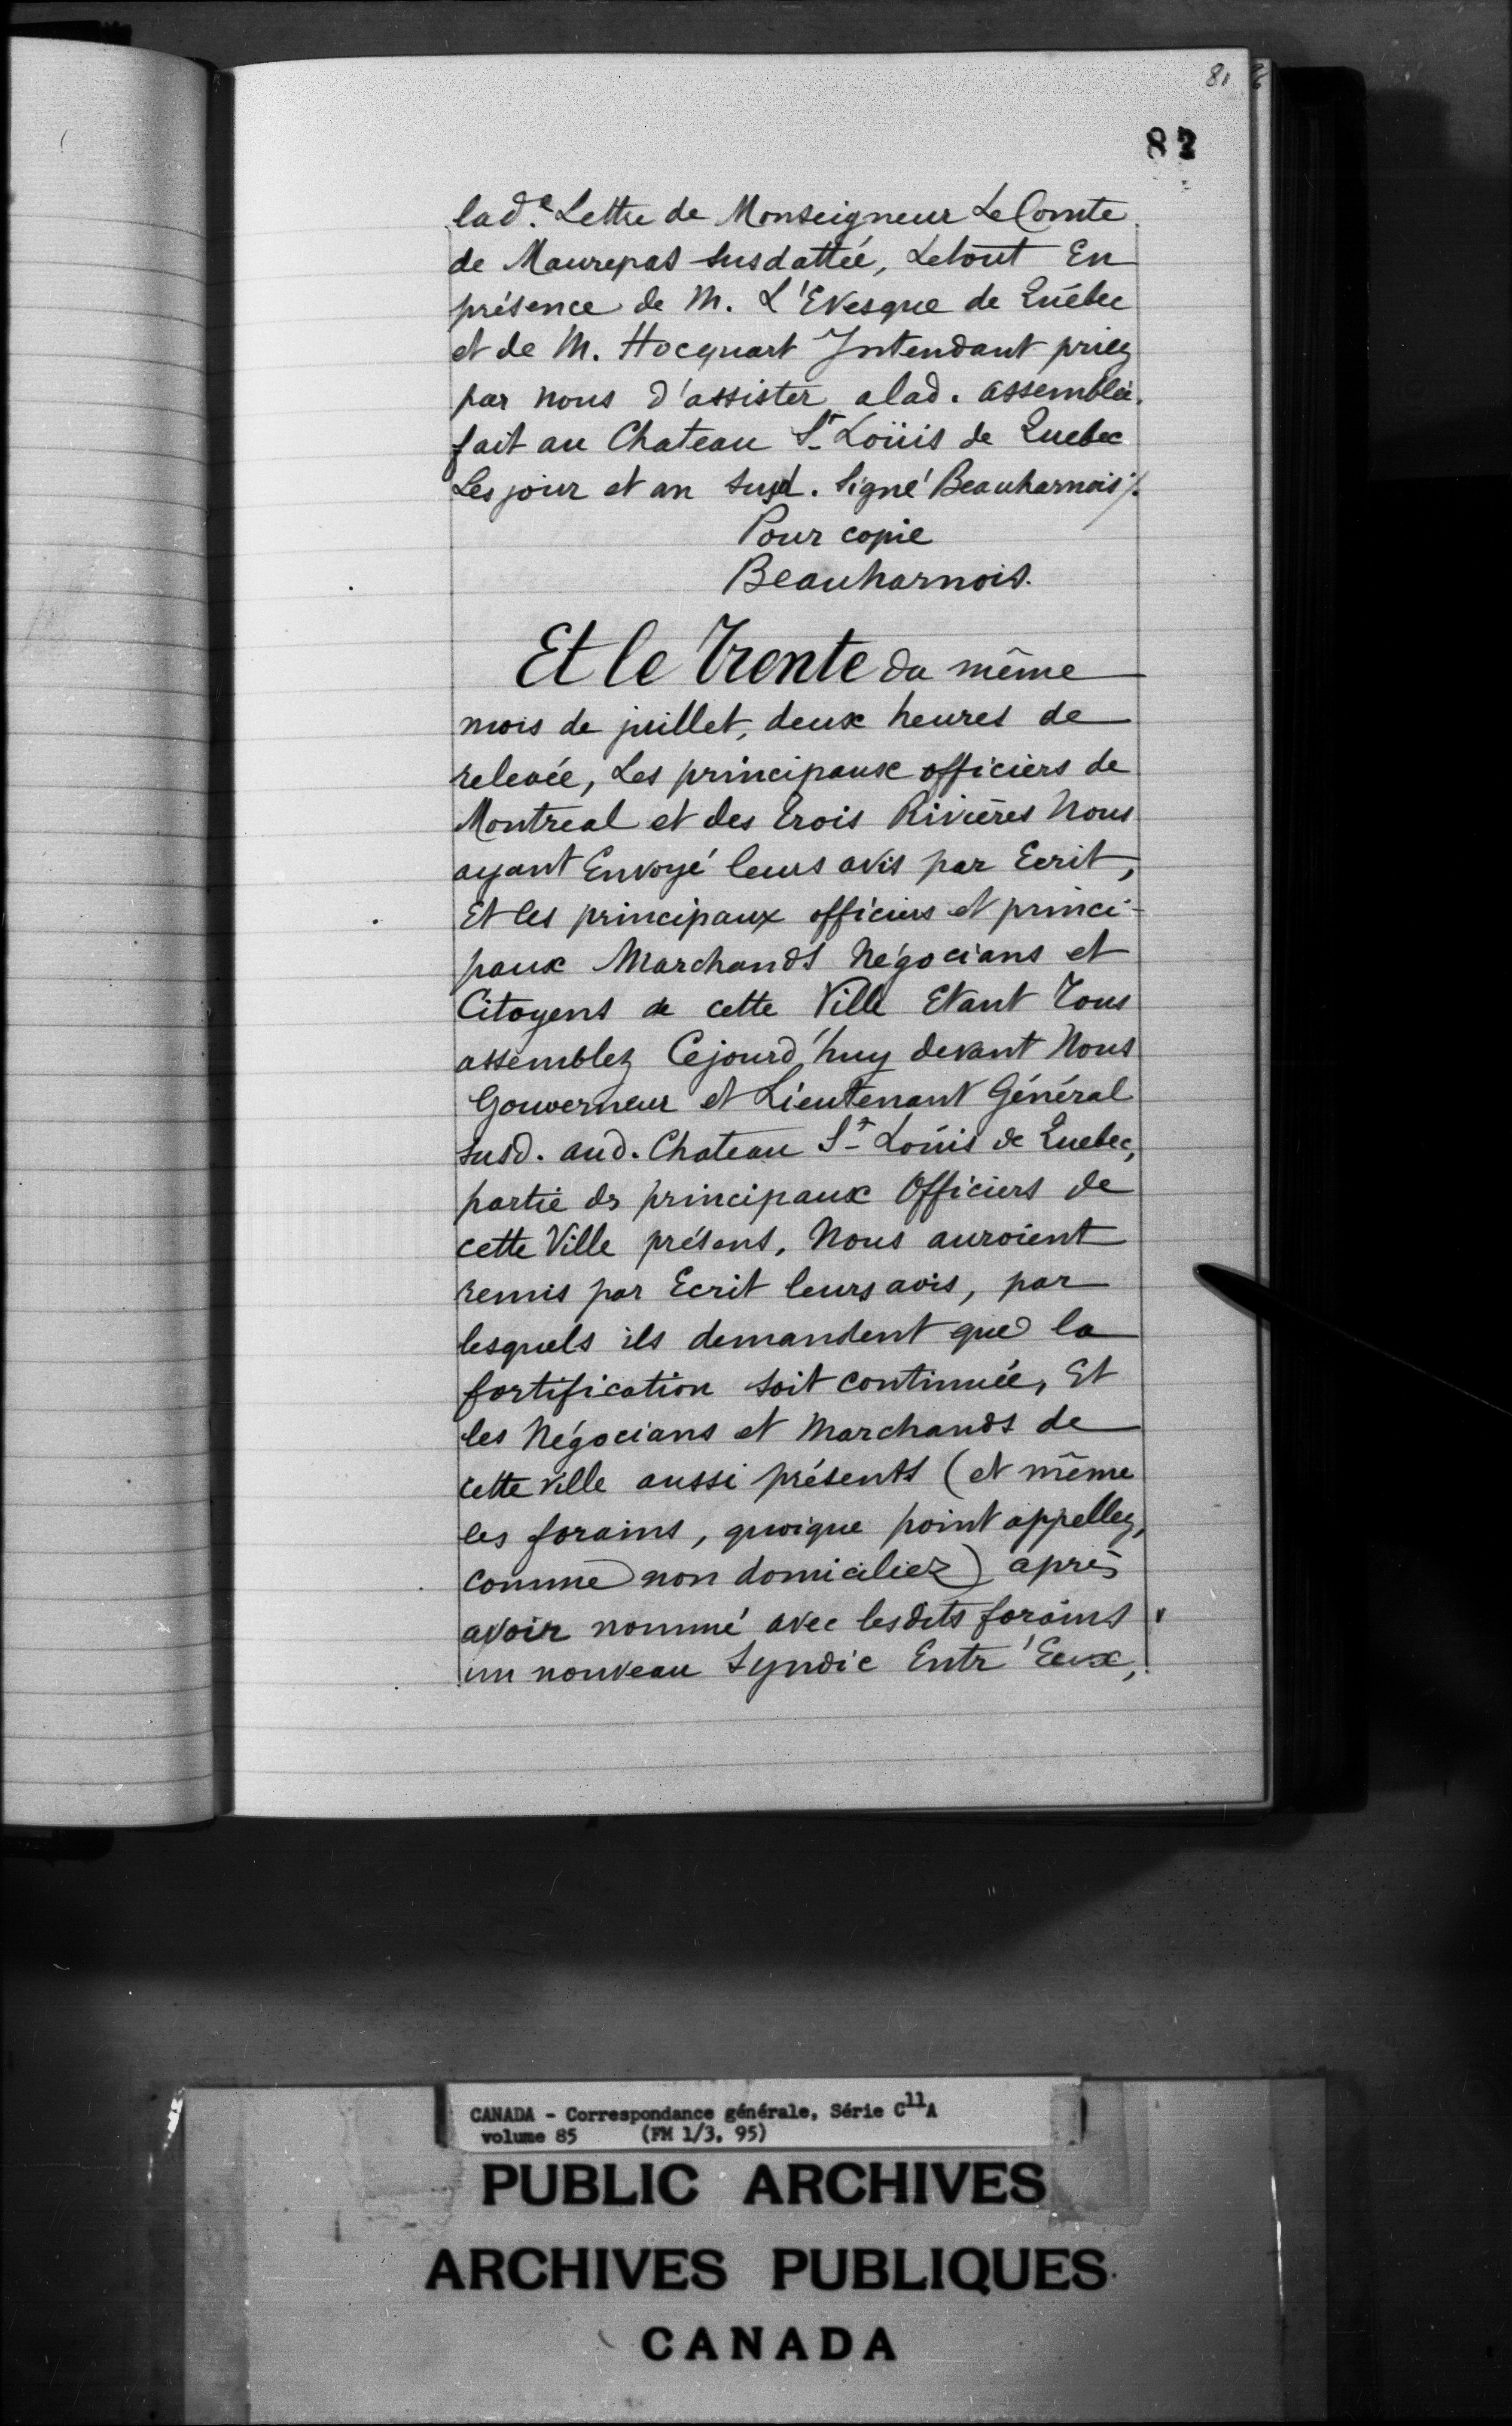 81
82
lad.e Lettre de Monseigneur Le Comte
de Maurepas susdattée, Letout En
présence de M. L'Evesque de Québec
et de M. Hocquart Intendant priez
par nous d'assister alad. assemblée.
fait au Chateau St Loüis de Quebec
Les jour et an susd. Signé Beauharnois /.
Pour copie
Beauharnois.
Et le Trente du même
mois de juillet, deux heures de
relevée, Les principaux officiers de
Montreal et des Trois Rivières Nous
ayant Envoyé leurs avis par Ecrit,
Et les principaux officiers et princi-
paux Marchands Négocians et
Citoyens de cette Ville Etant Tous
assemblez Cejourd'huy devant Nous
Gouverneur et Lieutenant Général
susd. aud. Chateau St Loüis de Quebec,
partie ds principaux Officiers de
cette Ville présens, Nous auroient
remis par Ecrit leurs avis, par
lesquels ils demandent que la
fortification soit continuée, Et
les Négocians et Marchands de
cette ville aussi présents (et même
les forains, quoique point appellez,
comme non domiciliez) après
avoir nommé avec lesdits forains
un nouveau Syndic Entr'Eux,
CANADA - Correspondance générale, Série C11A
volume 85 (FM 1/3, 95)
PUBLIC ARCHIVES
ARCHIVES PUBLIQUES
CANADA